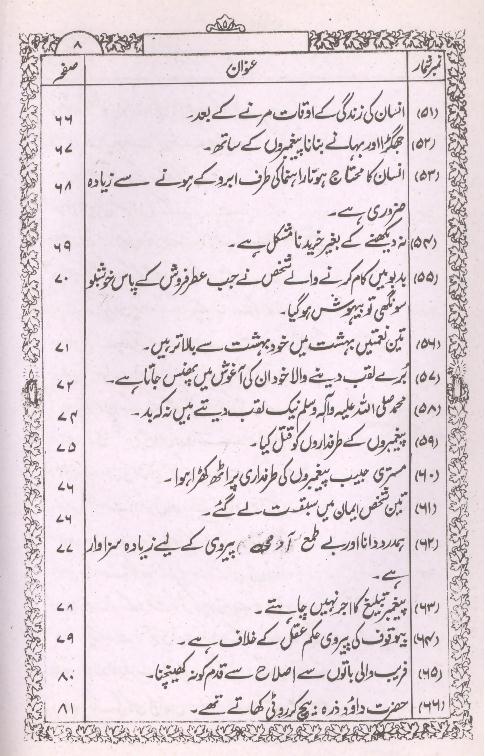 ۸
نمبر شمار عنوان صفحہ
(۵۱) انسان کی زندگی کے اوقات مرنے کے بعد۔ ۶۶
(۵۲) جھگڑا اور بہانے بنانا پیغمبروں کے ساتھ۔ ۶۷
(۵۳) انسان کا محتاج ہونا راہنما کی طرف ابرو کے ہونے سے زیادہ ۶۸
ضروری ہے۔
(۵۴) نہ دیکھنے کے بغیر خریدنا مشکل ہے۔ ۶۹
(۵۵) بدبو میں کام کرنے والے شخص نے جب عطر فروش کے پاس خوشبو ۷۰
سونگھی تو بیہوش ہو گیا۔
(۵۶) تین نعمتیں بہشت میں خود بہشت سے بالاتر ہیں۔ ۷۱
(۵۷) بُرے لقب دینے والا خود ان کی آغوش میں پھنس جاتا ہے۔ ۷۲
(۵۸) محمد صلی اللہ علیہ وآلہ وسلم نیک لقب دیتے ہیں نہ کہ بد۔ ۷۴
(۵۹) پیغمبروں کے طرفداروں کو قتل کیا۔ ۷۵
(۶۰) مستری حبیب پیغمبروں کی طرفداری پر اٹھ کھڑا ہوا۔ ۷۶
(۶۱) تین شخص ایمان میں سبقت لے گئے۔ ۷۶
(۶۲) ہمدرد دانا اور بے طمع آدمی پیروی کے لیے زیادہ سزاوار ۷۷
ہے۔
(۶۳) پیغمبر تبلیغ کا اجر نہیں چاہتے۔ ۷۸
(۶۴) بیوقوف کی پیروی حکم عقل کے خلاف ہے۔ ۷۹
(۶۵) فریب والی باتوں سے اصلاح سے قدم کو نہ کھینچنا۔ ۸۰
(۶۶) حضرت داؤد ذرہ بیچ کر روٹی کھاتے تھے۔ ۸۱